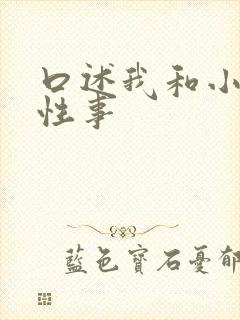 口述我和小
性事
藍色寶石憂郁